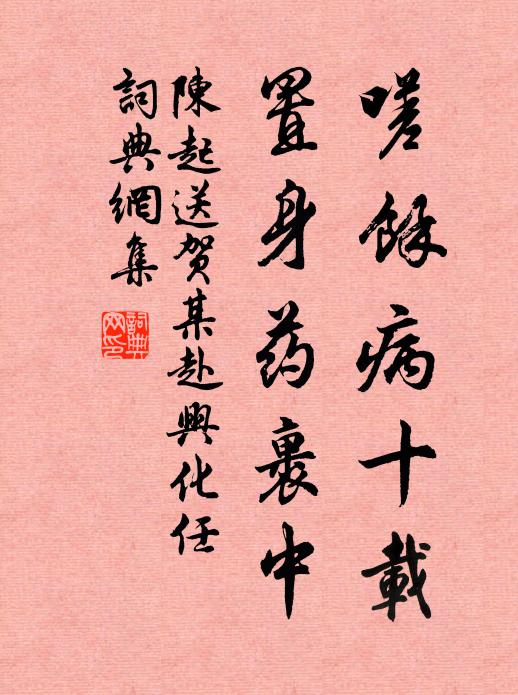 嗟餘病十載
置身药裹中
陳起送賀某赴興化任
詞典網集
詞典網印